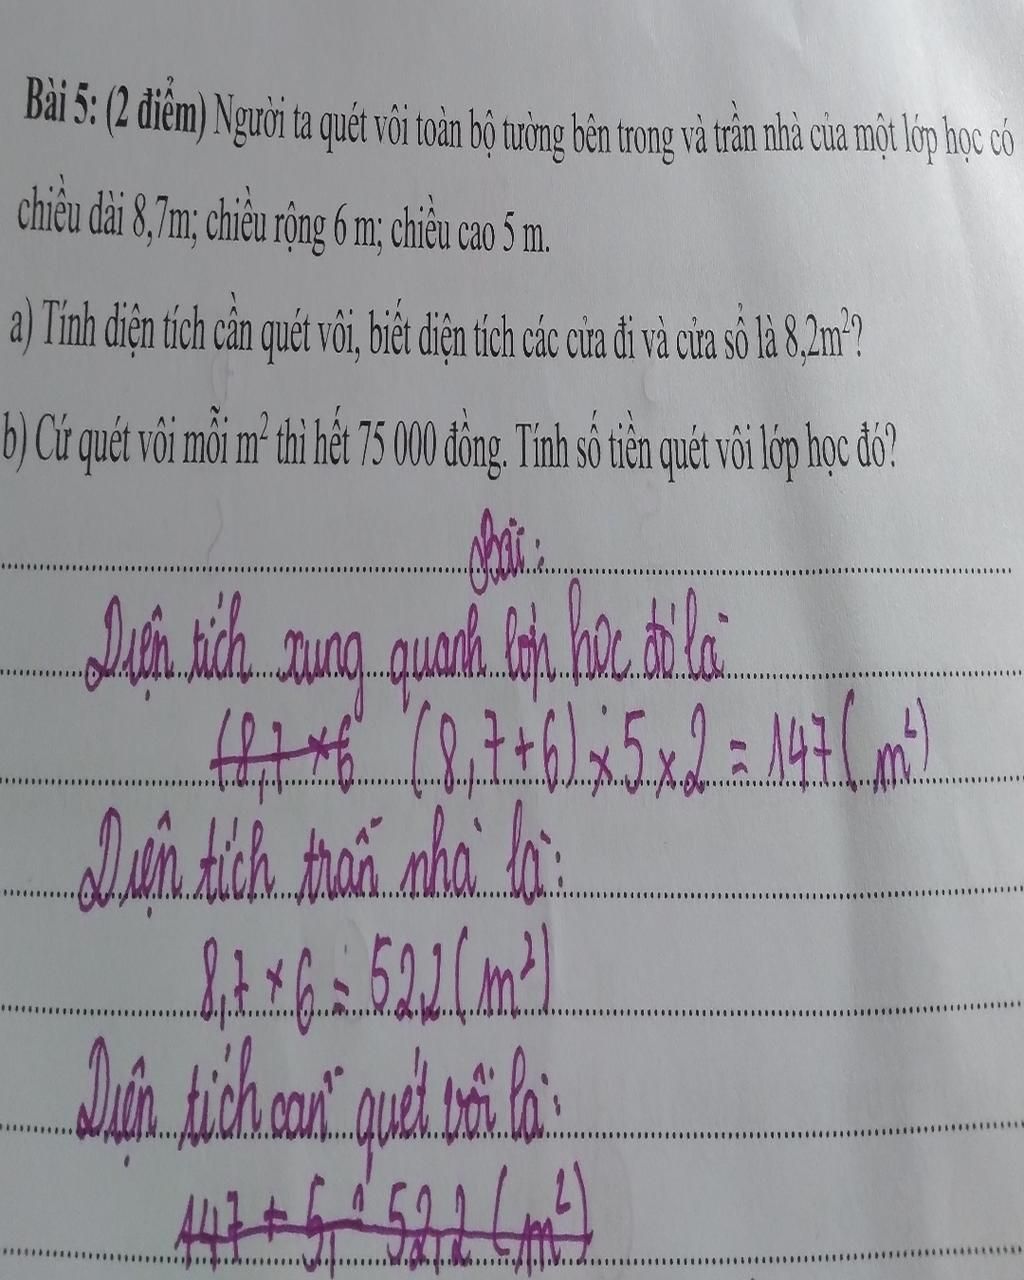 Bài 5: (2 điểm) Người ta quét vôi toàn bộ tường bên trong và trần nhà của một lớp học có
chiều dài 8,7m; chiều rộng 6 m; chiều cao 5 m.
a) Tính diện tích cần quét vôi, biết diện tích các cửa đi và cửa sổ là 8,2m²?
b) Cứ quét vôi mỗi m² thì hết 75 000 đồng. Tính số tiền quét vôi lớp học đó?
Bài:
Diện tích xung quanh lớp học đó là
(8,7 × 6 (8,7 + 6) × 5 × 2 = 147 (m²)
Diện tích trần nhà là:
8,7 × 6 = 52,2 (m²)
Diện tích cần quét vôi là:
147 + 52,2 (m²)